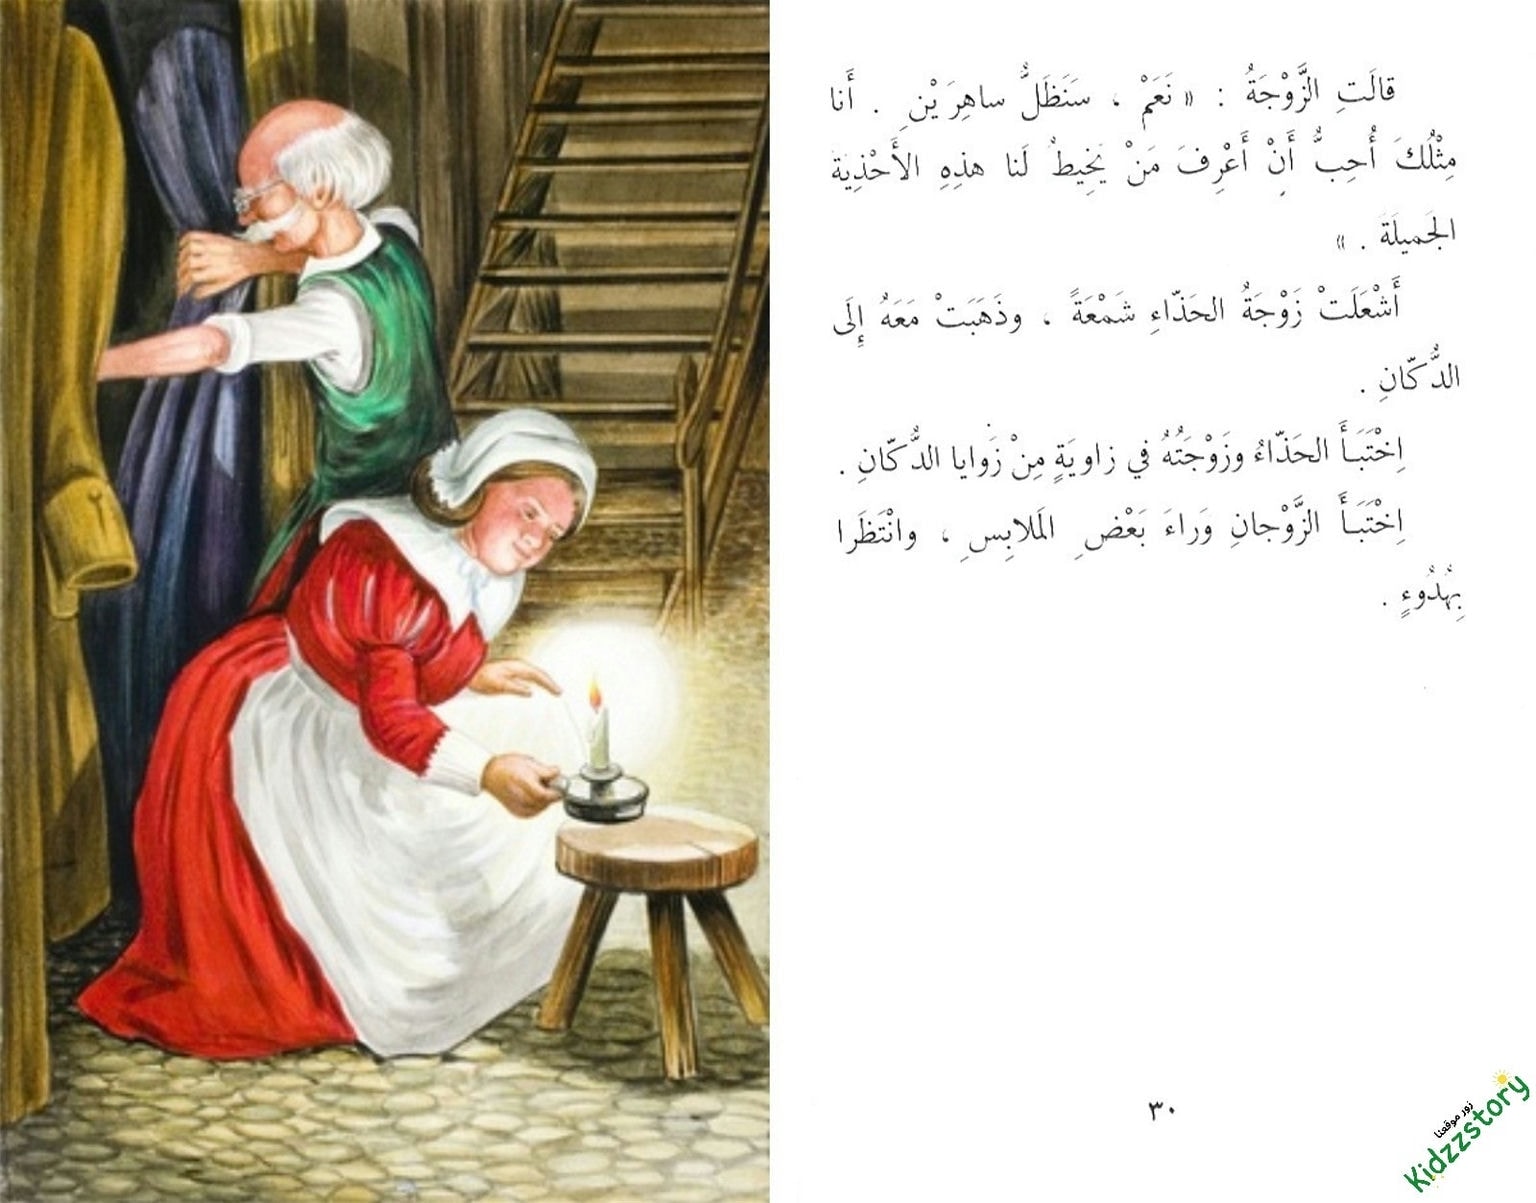 قالَتِ الزَّوْجَةُ : « نَعَمْ ، سَنَظَلُّ ساهِرَيْنِ . أَنا
مِثْلُكَ أُحِبُّ أَنْ أَعْرِفَ مَنْ يَخِيطُ لَنا هذِهِ الأَحْذِيَةَ
الجَميلَةَ . »
أَشْعَلَتْ زَوْجَةُ الحَذّاءِ شَمْعَةً ، وذَهَبَتْ مَعَهُ إِلَى
الدُّكّانِ .
اِخْتَبَأَ الحَذّاءُ وزَوْجَتُهُ في زاوِيَةٍ مِنْ زَوايا الدُّكّانِ .
اِخْتَبَأَ الزَّوْجانِ وَراءَ بَعْضِ المَلابِسِ ، وانْتَظَرا
بِهُدُوءٍ .
٣٠
زور موقعنا
Kidzzstory